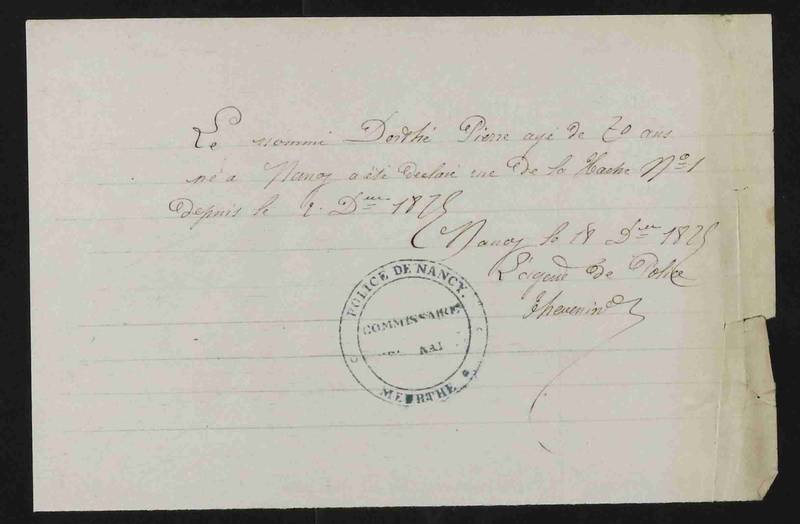 Le nommé Dorthé Pierre agé de 70 ans
né à Nancy a été declaré rue de la Hache N° 1
Depuis le 2 Dbre 1875
Nancy le 18 Dbre 1875
L'agent de Police
Thevenin
POLICE DE NANCY.
COMMISSAIRE
MEURTHE